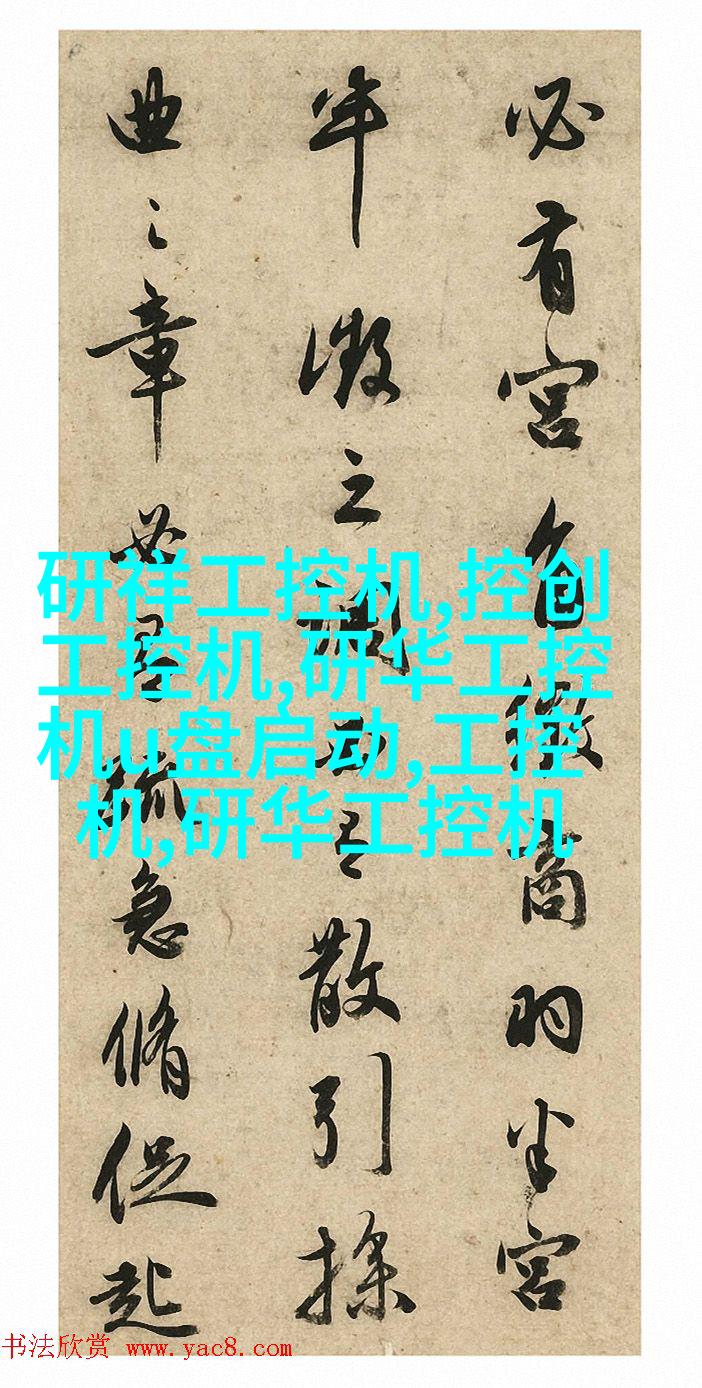 必有宮角徵商羽半宮
半徵之調又有散引操
曲之章必有急脩促起
研祥工控机,控创
工控机,研华工控
机u盘启动,工控
机,研华工控机
书法欣赏 www.yac8.com